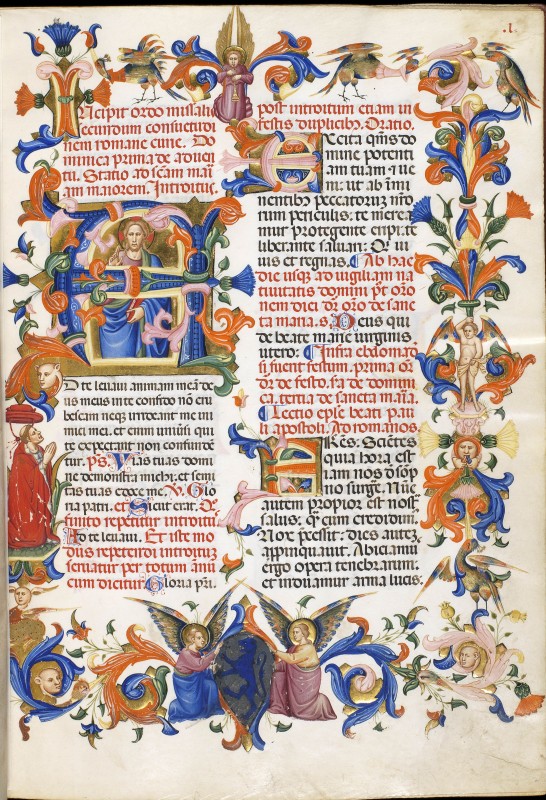 .I.
Incipit ordo missalis
secundum consuetudi
nem romane curie. Do
minica prima de aduen
tu. Statio ad scam mari
am maiorem. Introitus.
AD te leuaui animam meã de
us meus in te confido nõ eru
bescam neqꝫ irrideant me ini
mici mei. et enim uniuersi qui
te expectant non confunde
tur. ps. Vias tuas domi
ne demonstra michi. et semi
tas tuas edoce me. V. Glo
ria patri. et Sicut erat. Quo
finito repetitur introitus
Ad te leuaui. Et iste mo
dus repetendi introitus
seruatur per totum annũ
cum dicitur Gloria pri.
post introitum etiam in
festis duplicibꝫ. Oratio.
Excita qms do
mine potenti
am tuam. et ue
ni: ut ab imi
nentibꝫ peccatorum nrõ
rum periculis. te merea
mur protegente eripi. te
liberante saluari: Qui ui
uis et regnas. Ab hac
die usqꝫ ad uigiliam na
tiuitatis domini pt orõ
nem diei dr oro de sanc
ta maria. Deus qui
de beate marie uirginis
utero. Infra ebdomad
si fuerit festum. prima orõ
dr de festo. scda de domini
ca. tertia de sancta maria.
Lectio eple beati pau
li apostoli. Ad romanos.
FRes: Scietes
quia hora est
iam nos d sop
no surge. Nuc
autem propior est nost
salus. qꝫ cum credidim
Nox precessit: dies autez
appinquauit. Abiciamꝫ
ergo opera tenebrarum:
et induamur arma lucis.